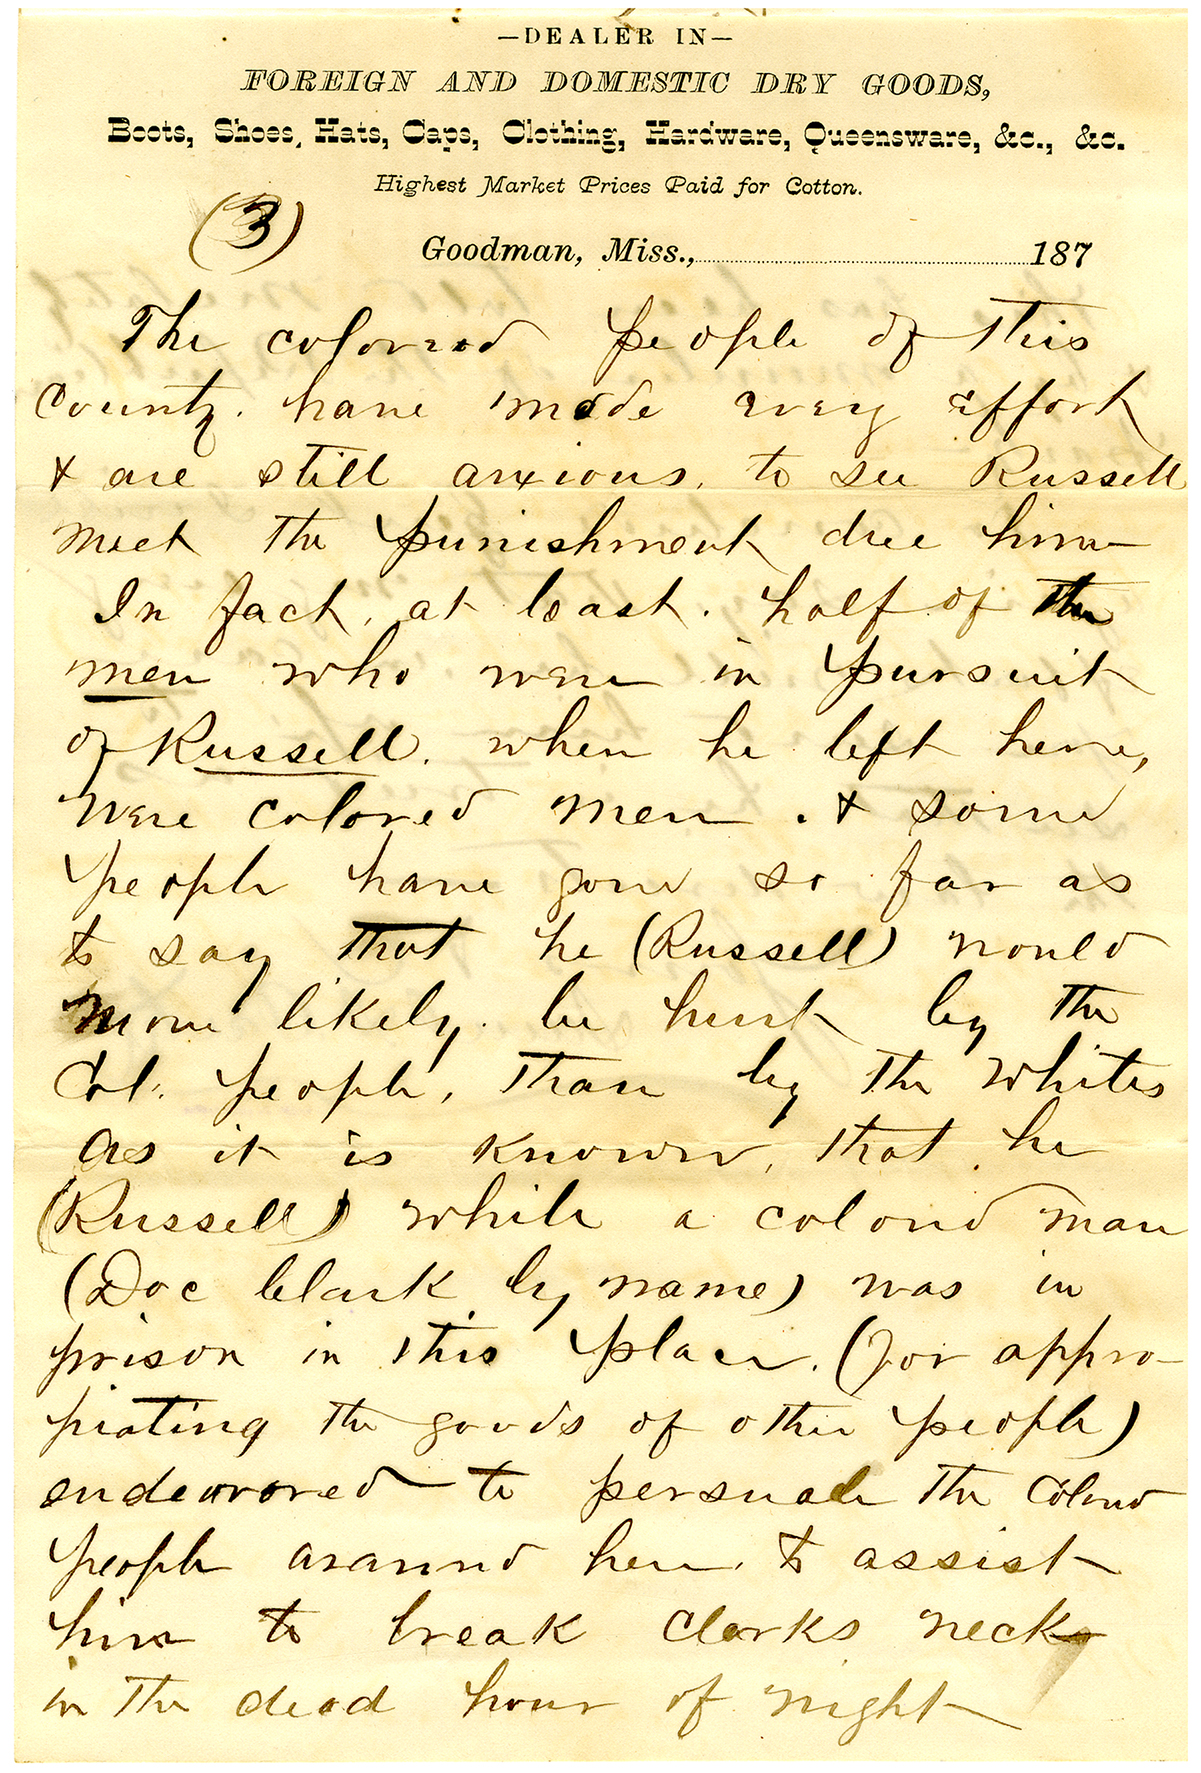 —DEALER IN—
FOREIGN AND DOMESTIC DRY GOODS,
Boots, Shoes, Hats, Caps, Clothing, Hardware, Queensware, &c., &c.
Highest Market Prices Paid for Cotton.
(3)
Goodman, Miss., 187
The colored people of this
County. have made every effort
& are still anxious, to see Russell
meet the punishment due him
In fact, at least. half of the
men who were in pursuit
of Russell. when he left here,
were colored men. & some
people have gone so far as
to say that he (Russell) would
more likely. be hurt by the
Col. people, than by the whites
as it is known, that he
(Russell) while a colored man
(Doc Clark by name) was in
prison in this place. (for appro-
piating the goods of other people)
endeavored to persuade the Colored
people around here. to assist
him to break Clarks neck
in the dead hour of night